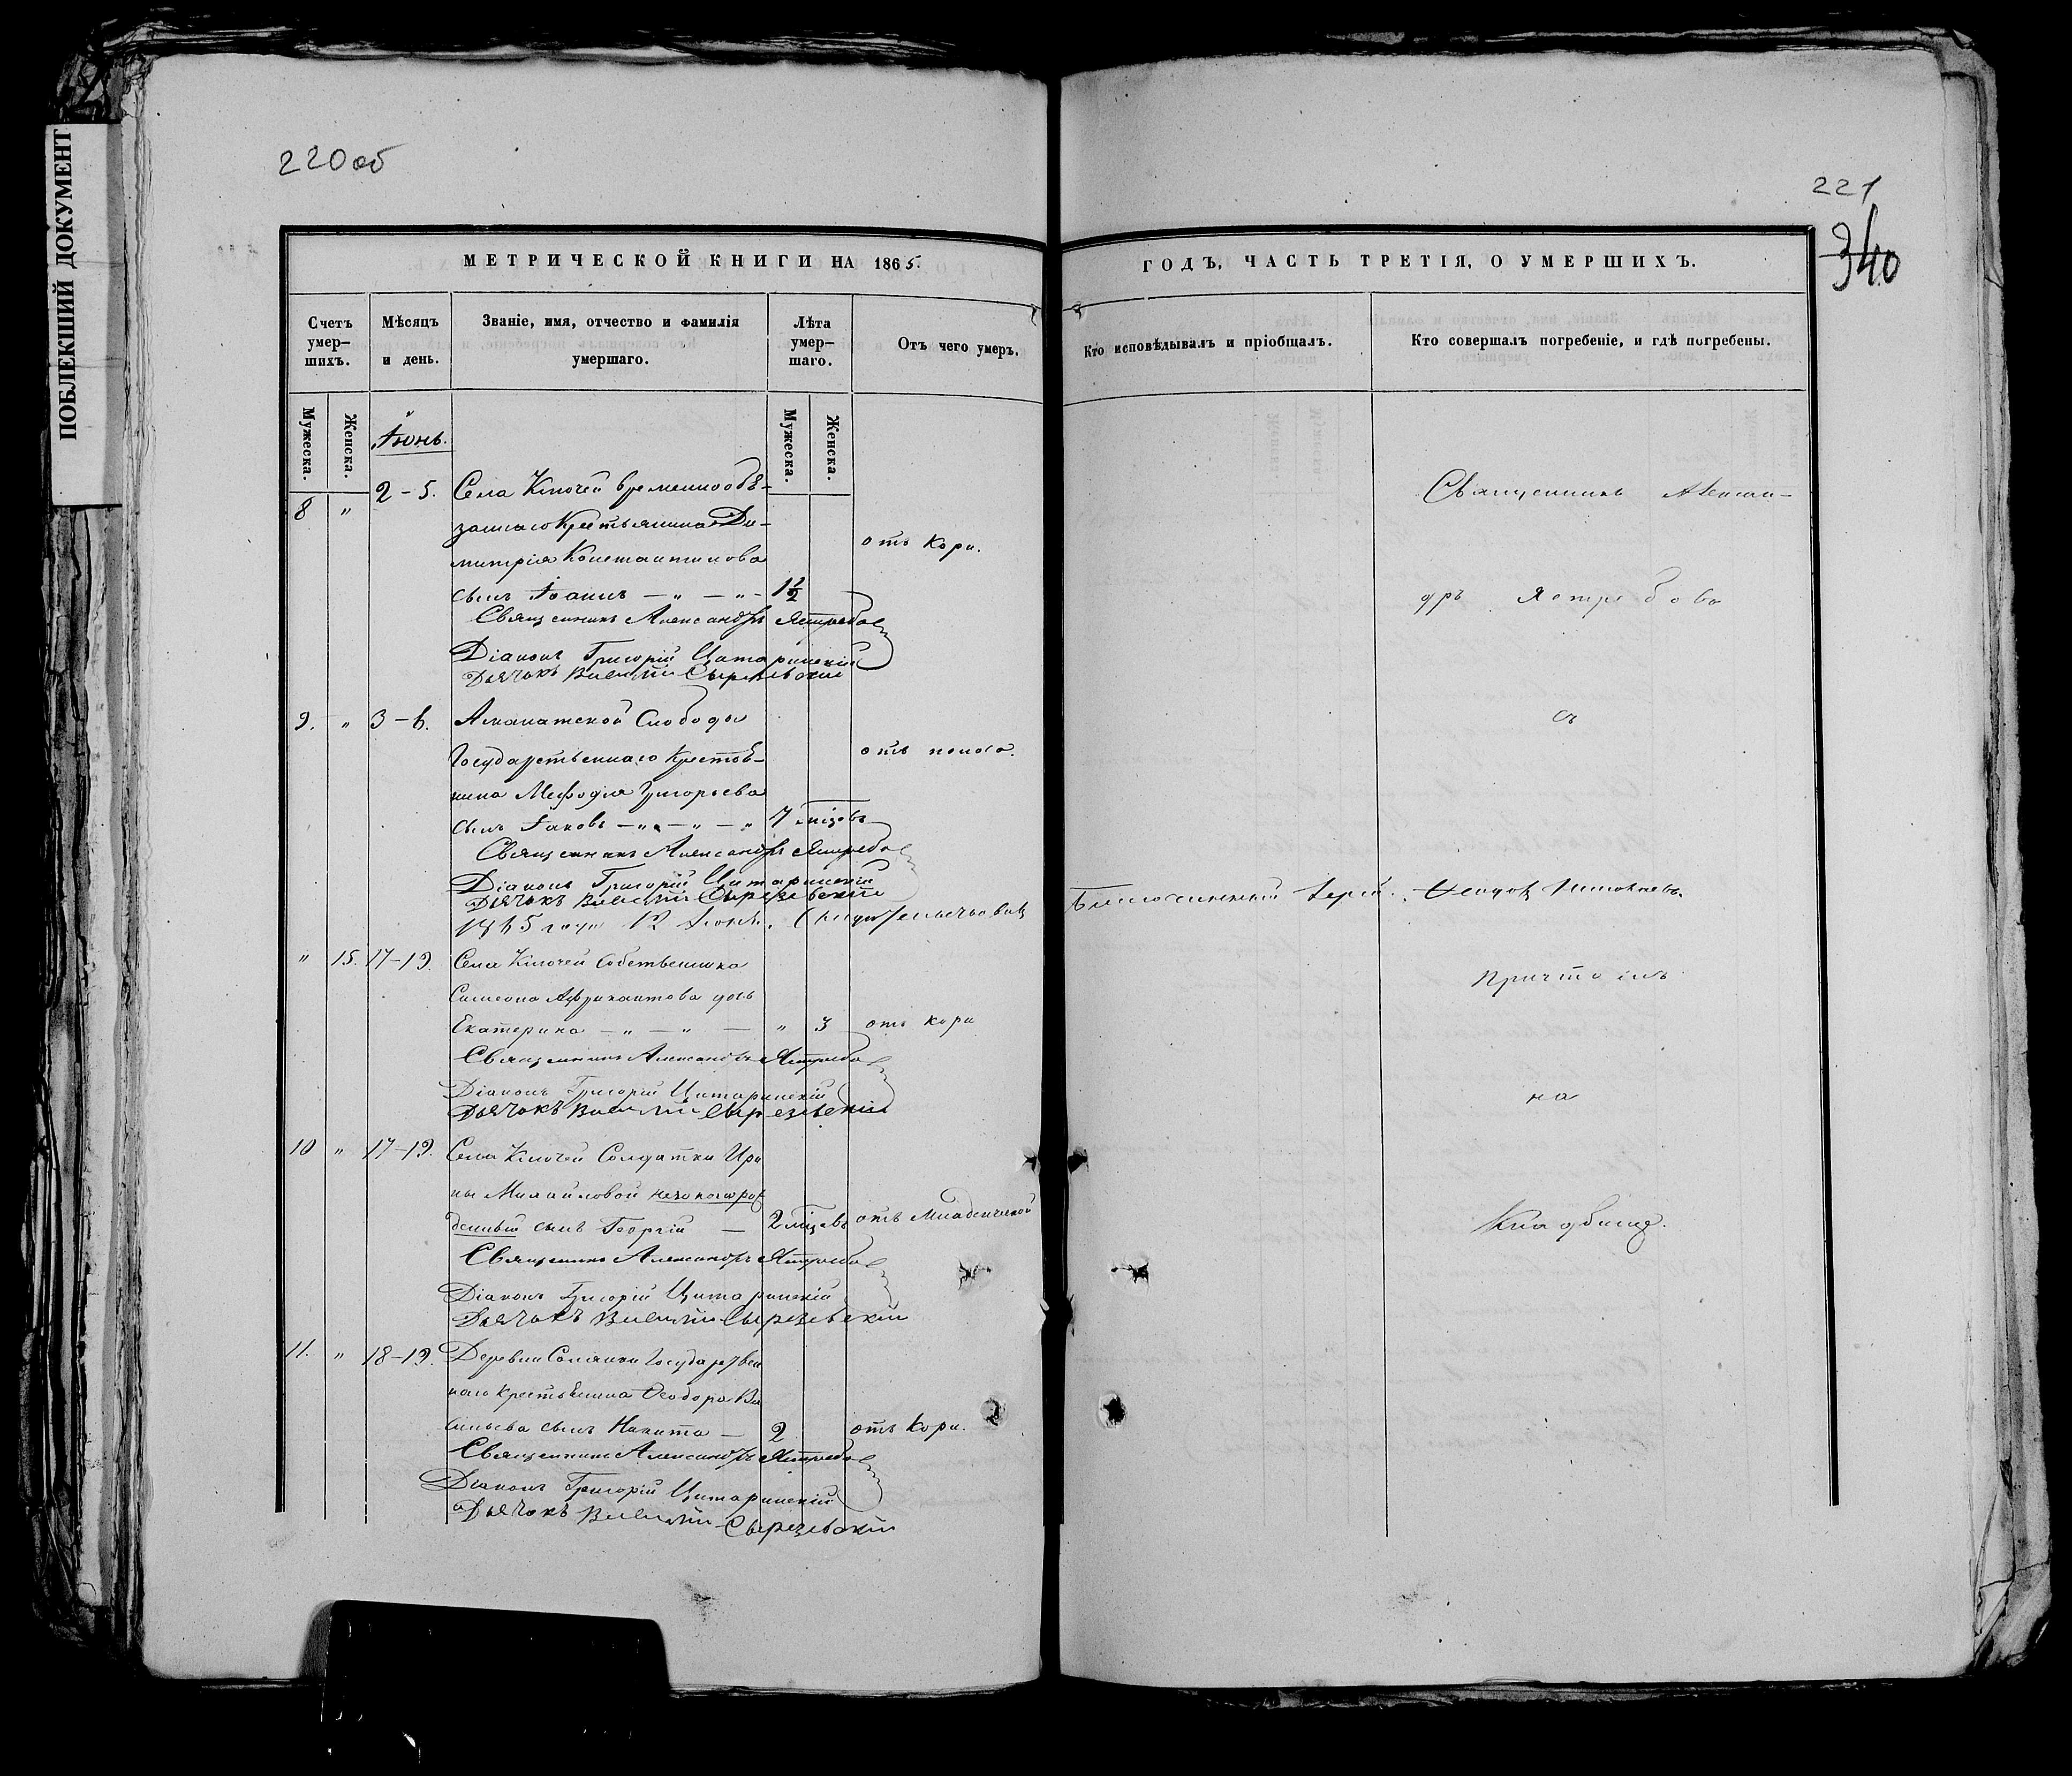 220об
221
340
ПОБЛЕКШИЙ ДОКУМЕНТ
МЕТРИЧЕСКОЙ КНИГИ НА 1865.
ГОДЪ, ЧАСТЬ ТРЕТІЯ, О УМЕРШИХЪ.
Счетъ умер-шихъ.
Мѣсяцъ и день.
Званіе, имя, отчество и фамилія умершаго.
Лѣта умер-шаго.
Отъ чего умеръ.
Кто исповѣдывалъ и пріобщалъ.
Кто совершалъ погребеніе, и гдѣ погребены.
Мужеска.
Женска.
Мужеска.
Женска.
Іюнь.
8 " 2-5. Села Ключей временнообѣ-
заннаго Крестьянина Ди-
митрія Константинова
отъ Кори.
сынъ Іоаннъ — " — " — 1½
Священникъ Александръ Ястребов
Діаконъ Григорій Цитаринскій
Дьячокъ Василій Сырезевскій
9. " 3-6. Аманатской Слободы
Государственнаго Крестьѣ-
отъ поноса.
нина Меѳодія Григорьева
сынъ Іаковъ — " — " — " 7 мѣсᲂвъ
Священникъ Александръ Ястребов
Діаконъ Григорій Цитаринскій
Дьячокъ Василій Сырезевскій
1865 года 12 Іюня.
Благочинный Іерей
" 15. 17-19. Села Ключей Собственника
Симеона Африкантова дочь
Екатерина — " — " — " 3 отъ кори
Священникъ Александръ Ястребов
Діаконъ Григорій Цитаринскій
Дьячокъ Василій Сырезевскій
10 " 17-19. Села Ключей Солдатки Ири
ны Михайловой незаконорож
денный сынъ Георгій — 2 мѣсᲂвъ отъ Младенческой
Священникъ Александръ Ястребов
Діаконъ Григорій Цитаринскій
Дьячокъ Василій Сырезевскій
11. " 18-19. Деревни Солянки Государствен
наго крестьѣнина Ѳеодора Ва
сильева сынъ Никита — 2 отъ Кори.
Священникъ Александръ Ястребов
Діаконъ Григорій Цитаринскій
Дьячокъ Василій Сырезевскій
Священникъ Алексан-
дръ Ястребовъ
съ
причтомъ
на
Кладбище.